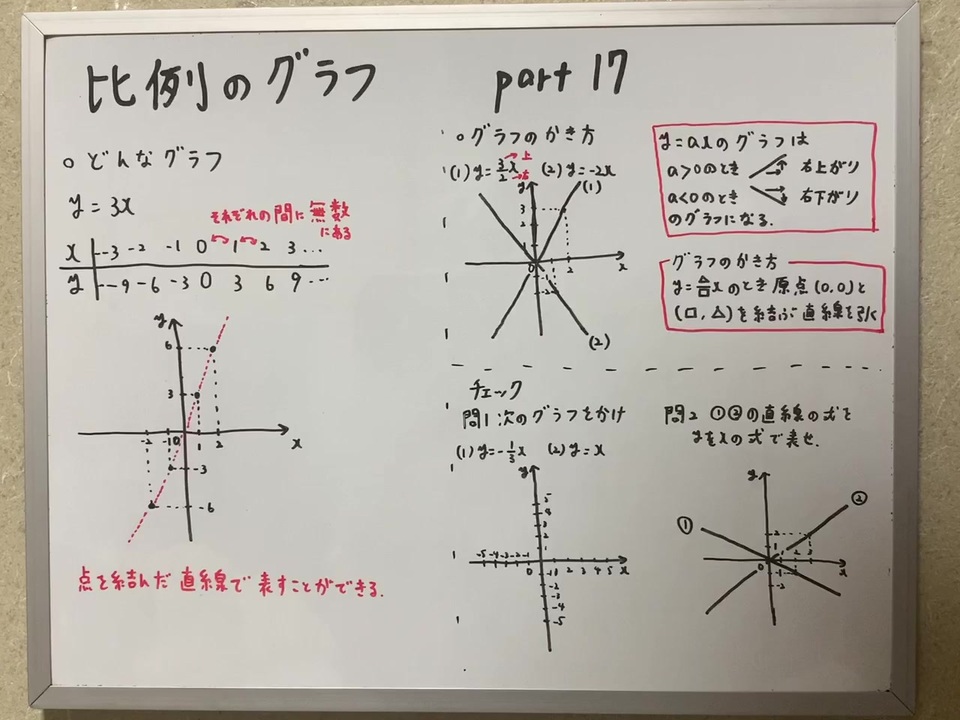 比例のグラフ
part 17
○どんなグラフ
y=3x
それぞれの間に無数
にある
x -3 -2 -1 0 1 2 3 …
y -9 -6 -3 0 3 6 9 …
y
6
3
-2 -1 0 1 2 x
-3
-6
点を結んだ直線で表すことができる.
○グラフのかき方
(1) y=3/2x →上 →右 (2) y=-2x
y (1)
3
2
1
0 2 x
-2
(2)
y=axのグラフは
a>0のとき 右上がり
a<0のとき 右下がり
のグラフになる.
グラフのかき方
y=△/□xのとき原点(0,0)と
(□,△)を結ぶ直線を引く
チェック
問1 次のグラフをかけ
(1) y=-1/3x (2) y=x
y
5
4
3
2
1
-5 -4 -3 -2 -1 0 1 2 3 4 5 x
-1
-2
-3
-4
-5
問2 ①②の直線の式を
yをxの式で表せ.
y
① ②
2
1
0 1 2 3 x
-1
-2